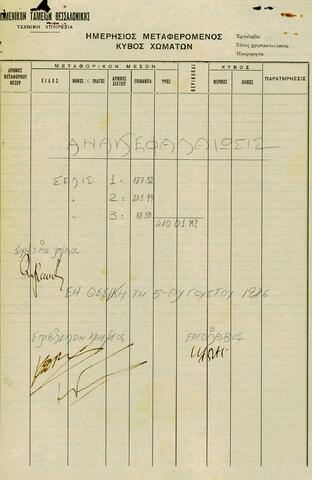 ΛΙΜΕΝΙΚΟΝ ΤΑΜΕΙΟΝ ΘΕΣΣΑΛΟΝΙΚΗΣ
ΤΕΧΝΙΚΗ ΥΠΗΡΕΣΙΑ
ΗΜΕΡΗΣΙΟΣ ΜΕΤΑΦΕΡΟΜΕΝΟΣ
ΚΥΒΟΣ ΧΩΜΑΤΩΝ
Ἐργολαβία
Τόπος χρησιμοποιήσεως
Ἡμερομηνία
ΑΡΙΘΜΟΣ ΜΕΤΑΦΟΡΙΚΟΥ ΜΕΣΟΥ
ΜΕΤΑΦΟΡΙΚΟΝ ΜΕΣΟΝ
ΕΙΔΟΣ
ΜΗΚΟΣ
ΠΛΑΤΟΣ
ΑΡΙΘΜΟΣ ΔΕΛΤΙΟΥ
ΕΠΙΦΑΝΕΙΑ
ΥΨΟΣ
ΚΥΒΟΣ
ΜΕΡΙΚΟΣ
ΟΛΙΚΟΣ
ΠΑΡΑΤΗΡΗΣΕΙΣ
ΑΝΑΚΕΦΑΛΑΙΩΣΙΣ
ΣΕΛΙΣ 1: 187.52
" 2: 203.99
" 3: 18.50
410.01 Μ3
ΕΝ ΘΕΣ/ΚΗ ΤΗ 5-ΑΥΓΟΥΣΤΟΥ
ΕΡΓΟΛΑΒΟΣ